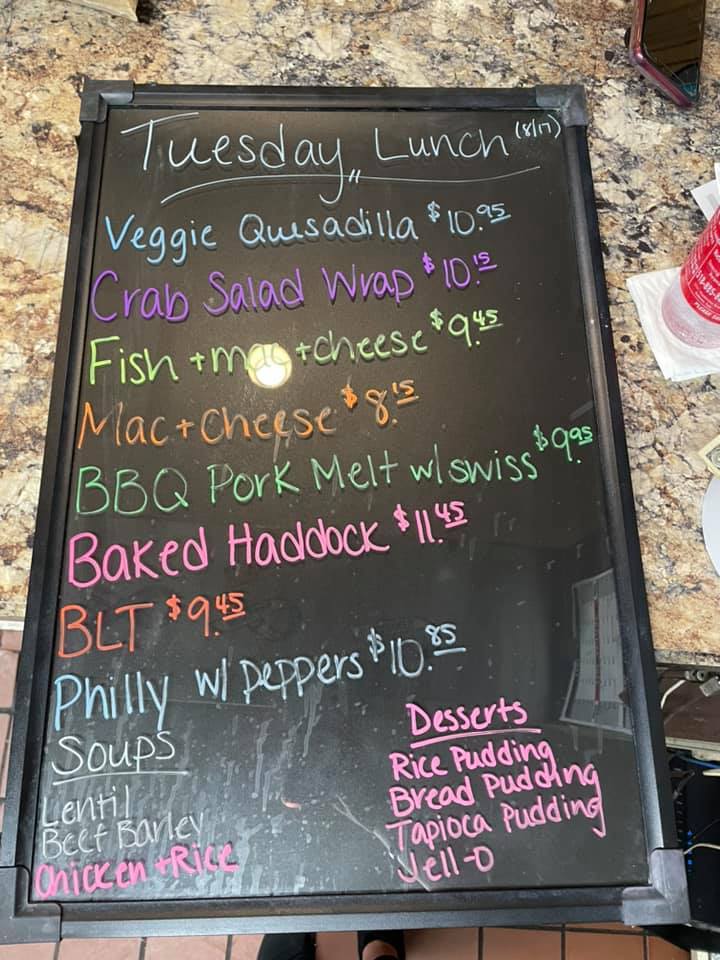 Tuesday Lunch (8/17)
Veggie Quesadilla $10.95
Crab Salad Wrap $10.15
Fish + mac + cheese $9.45
Mac + Cheese $8.15
BBQ Pork Melt w/ swiss $9.95
Baked Haddock $11.45
BLT $9.45
Philly w/ peppers $10.85
Soups
Lentil
Beef Barley
Chicken + Rice
Desserts
Rice Pudding
Bread Pudding
Tapioca Pudding
Jell-O